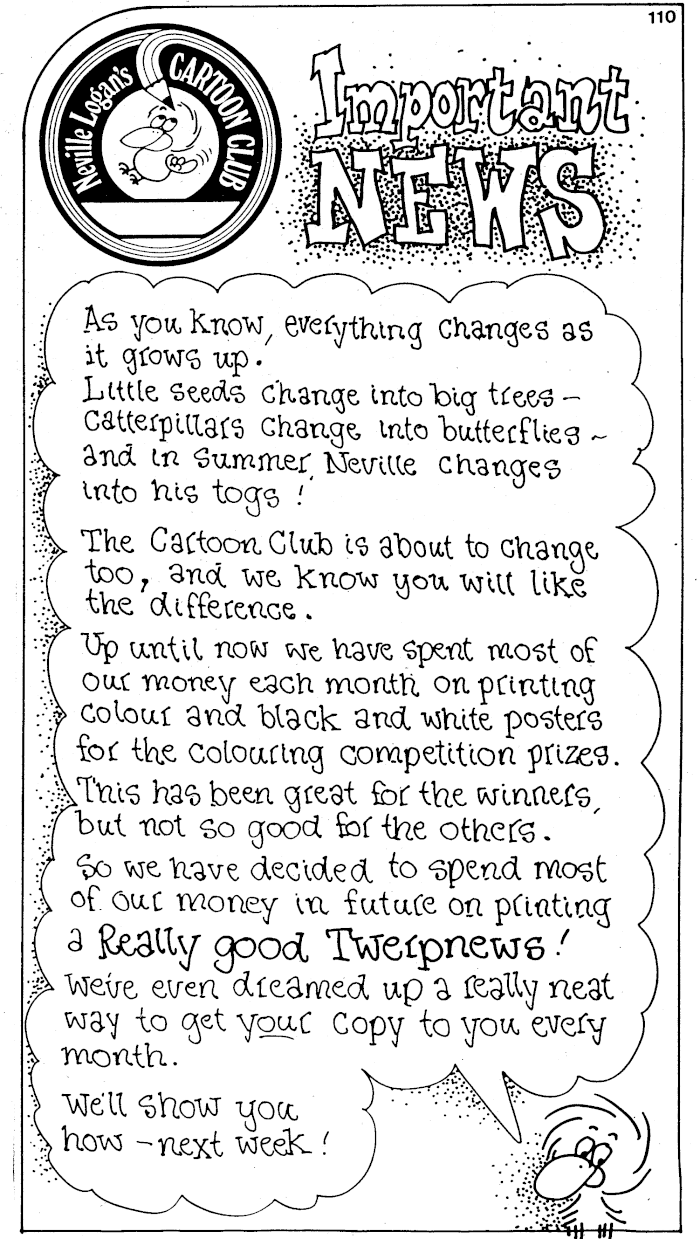 110
Neville Logan's CARTOON CLUB
Important
NEWS
As you know, everything changes as
it grows up.
Little seeds change into big trees –
Catterpillars change into butterflies ~
and in Summer, Neville changes
into his togs !
The Cartoon Club is about to change
too, and we know you will like
the difference.
Up until now we have spent most of
our money each month on printing
colour and black and white posters
for the colouring competition prizes.
This has been great for the winners,
but not so good for the others.
So we have decided to spend most
of our money in future on printing
a Really good Twerpnews !
We've even dreamed up a really neat
way to get your copy to you every
month.
We'll show you
how – next week !